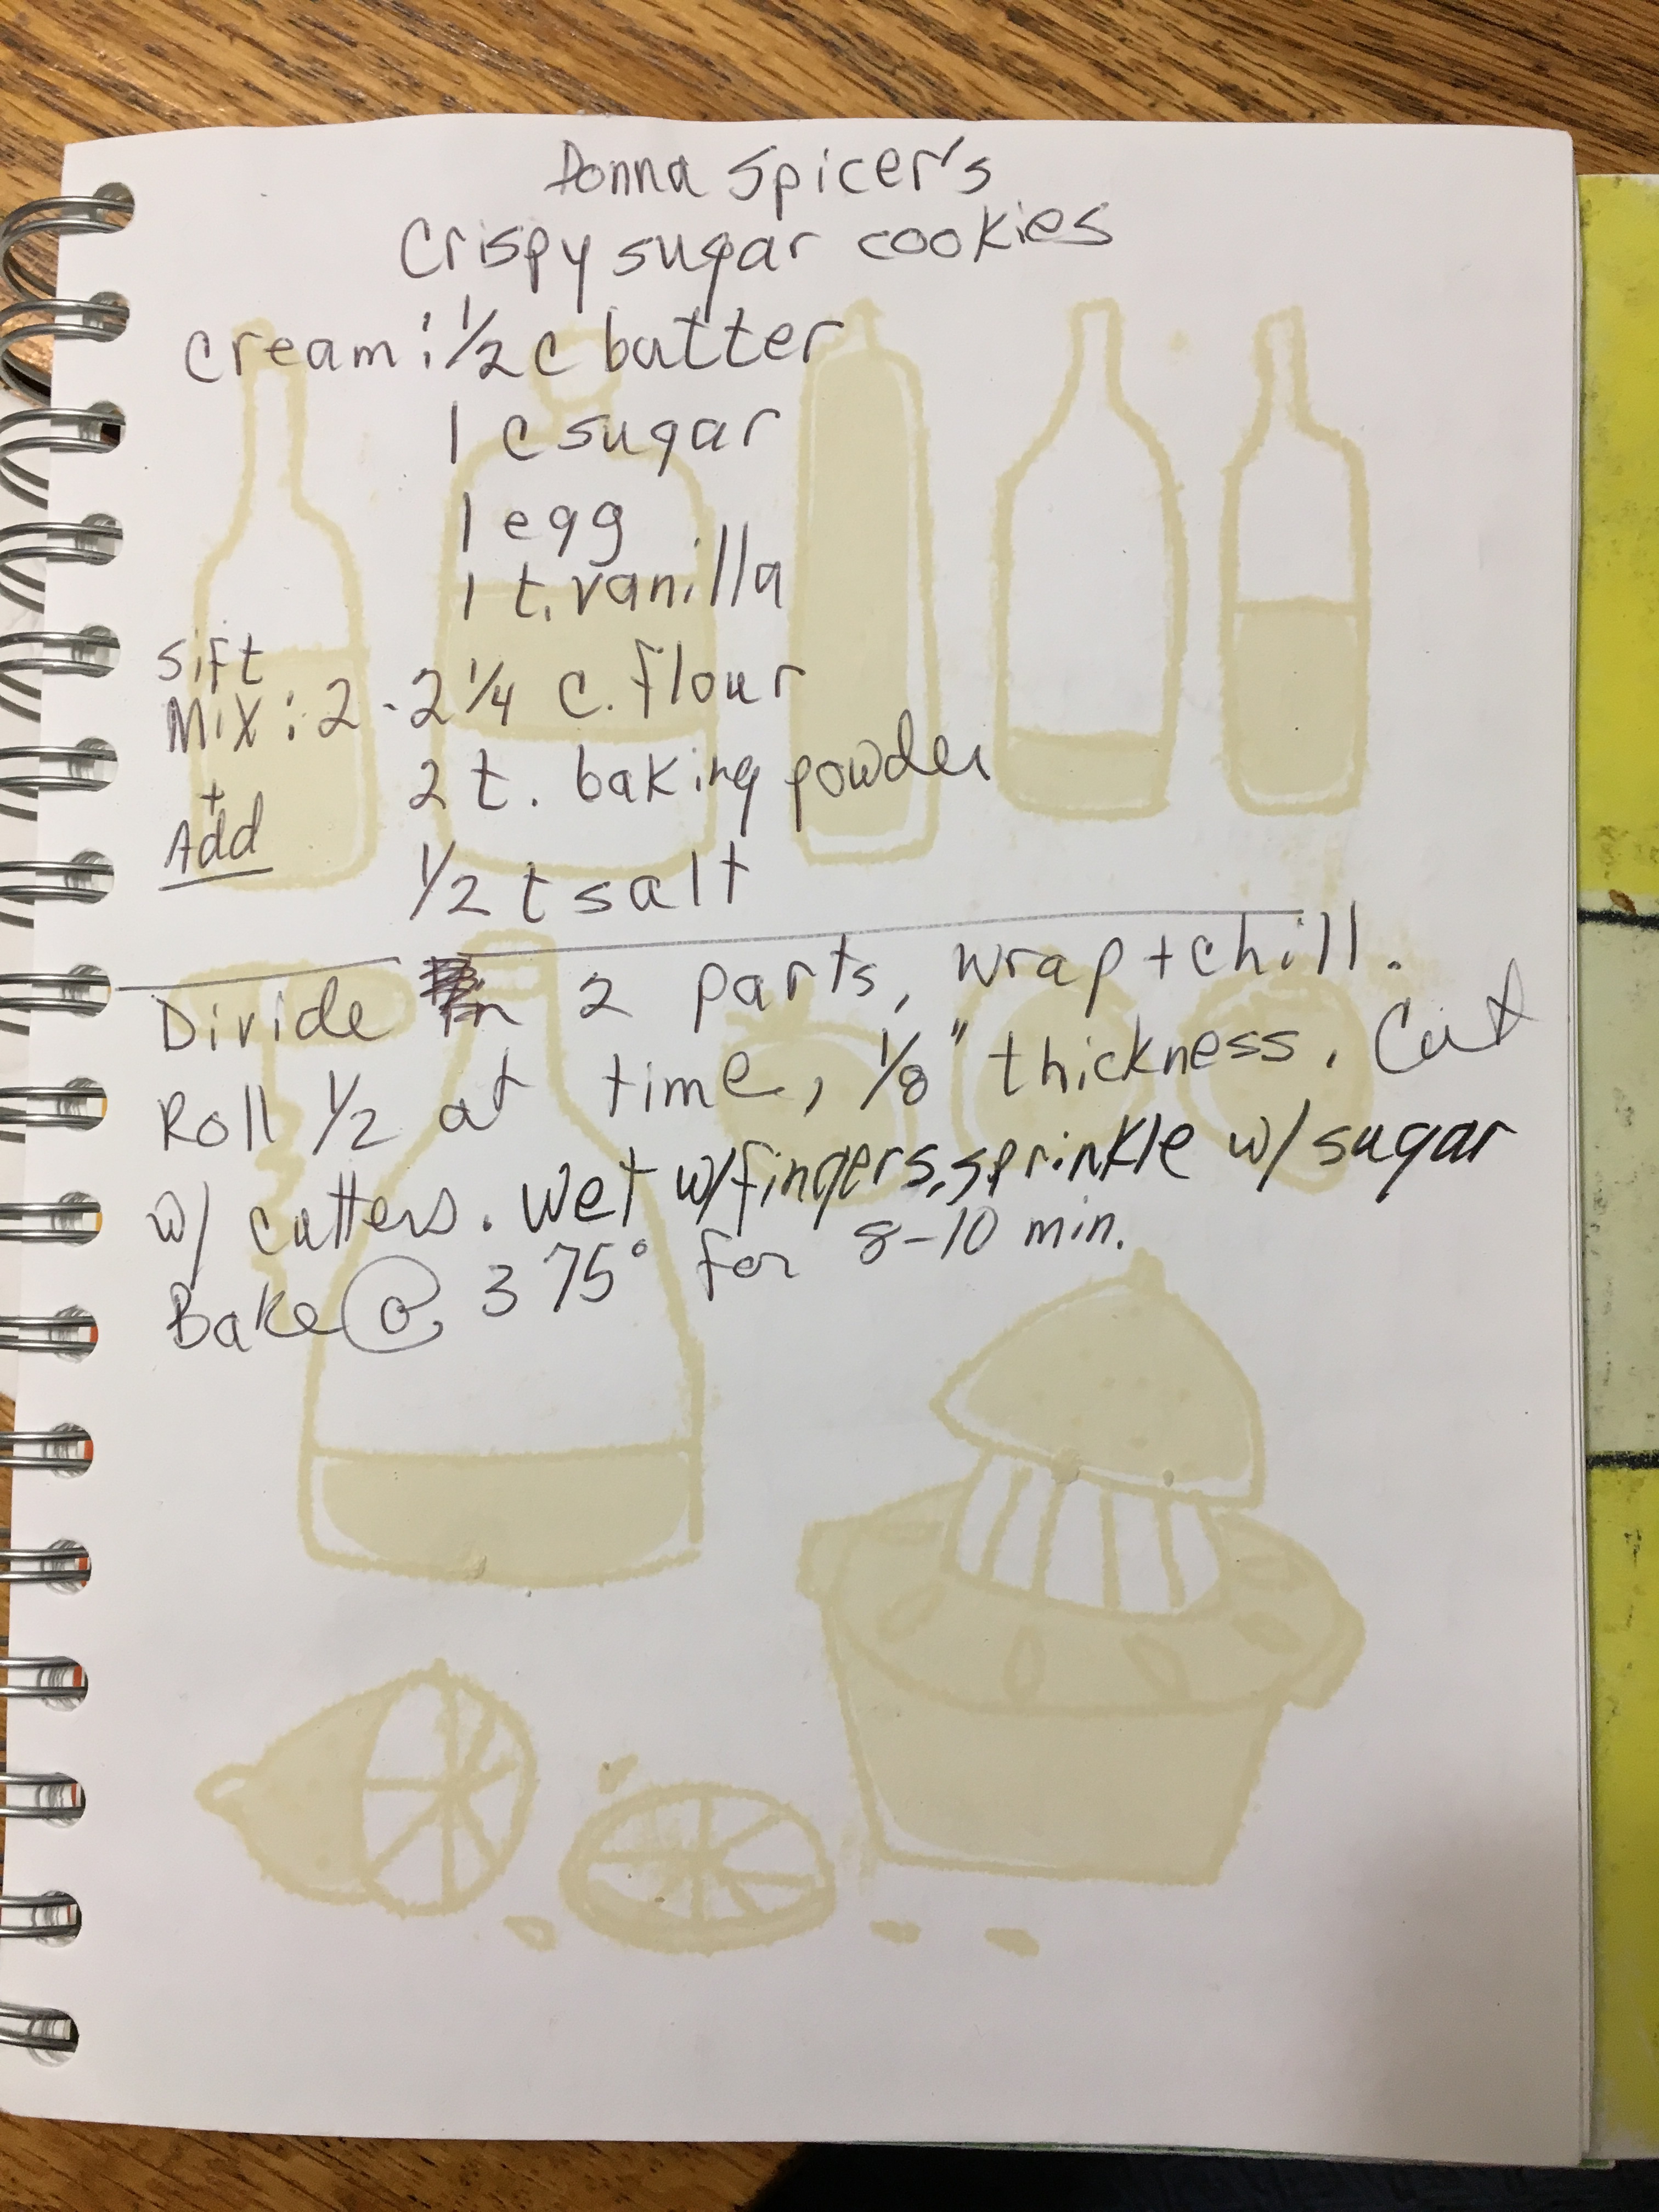 Donna Spicer's
Crispy sugar cookies
cream: 1/2 c butter
1 c sugar
1 egg
1 t. vanilla
Sift
Mix: 2 - 2 1/4 c. flour
+
2 t. baking powder
Add
1/2 t salt
Divide in 2 parts, wrap + chill.
Roll 1/2 at time, 1/8" thickness. Cut
w/ cutters. Wet w/fingers, sprinkle w/ sugar
Bake @ 375° for 8-10 min.